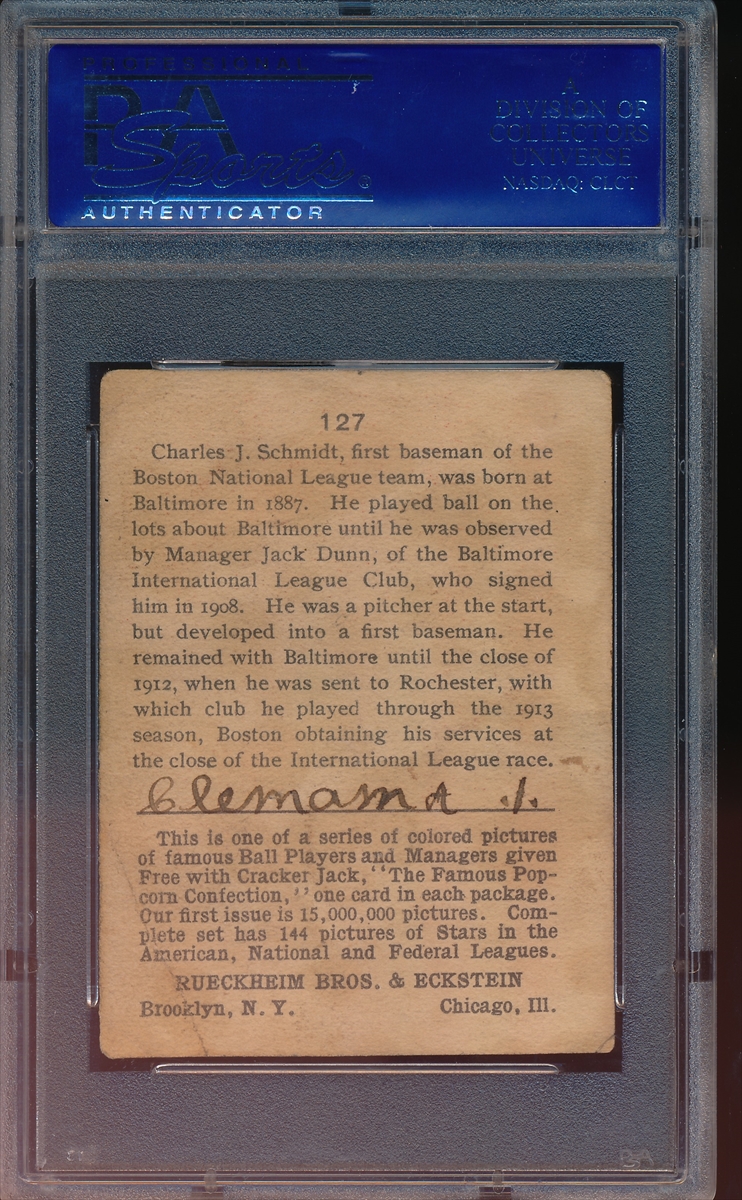 PROFESSIONAL
PSA
Sports
AUTHENTICATOR
A
DIVISION OF
COLLECTORS
UNIVERSE
NASDAQ: CLCT
127
Charles J. Schmidt, first baseman of the
Boston National League team, was born at
Baltimore in 1887. He played ball on the
lots about Baltimore until he was observed
by Manager Jack Dunn, of the Baltimore
International League Club, who signed
him in 1908. He was a pitcher at the start,
but developed into a first baseman. He
remained with Baltimore until the close of
1912, when he was sent to Rochester, with
which club he played through the 1913
season, Boston obtaining his services at
the close of the International League race.
This is one of a series of colored pictures
of famous Ball Players and Managers given
Free with Cracker Jack, "The Famous Pop-
corn Confection," one card in each package.
Our first issue is 15,000,000 pictures. Com-
plete set has 144 pictures of Stars in the
American, National and Federal Leagues.
RUECKHEIM BROS. & ECKSTEIN
Brooklyn, N. Y. Chicago, Ill.
PSA